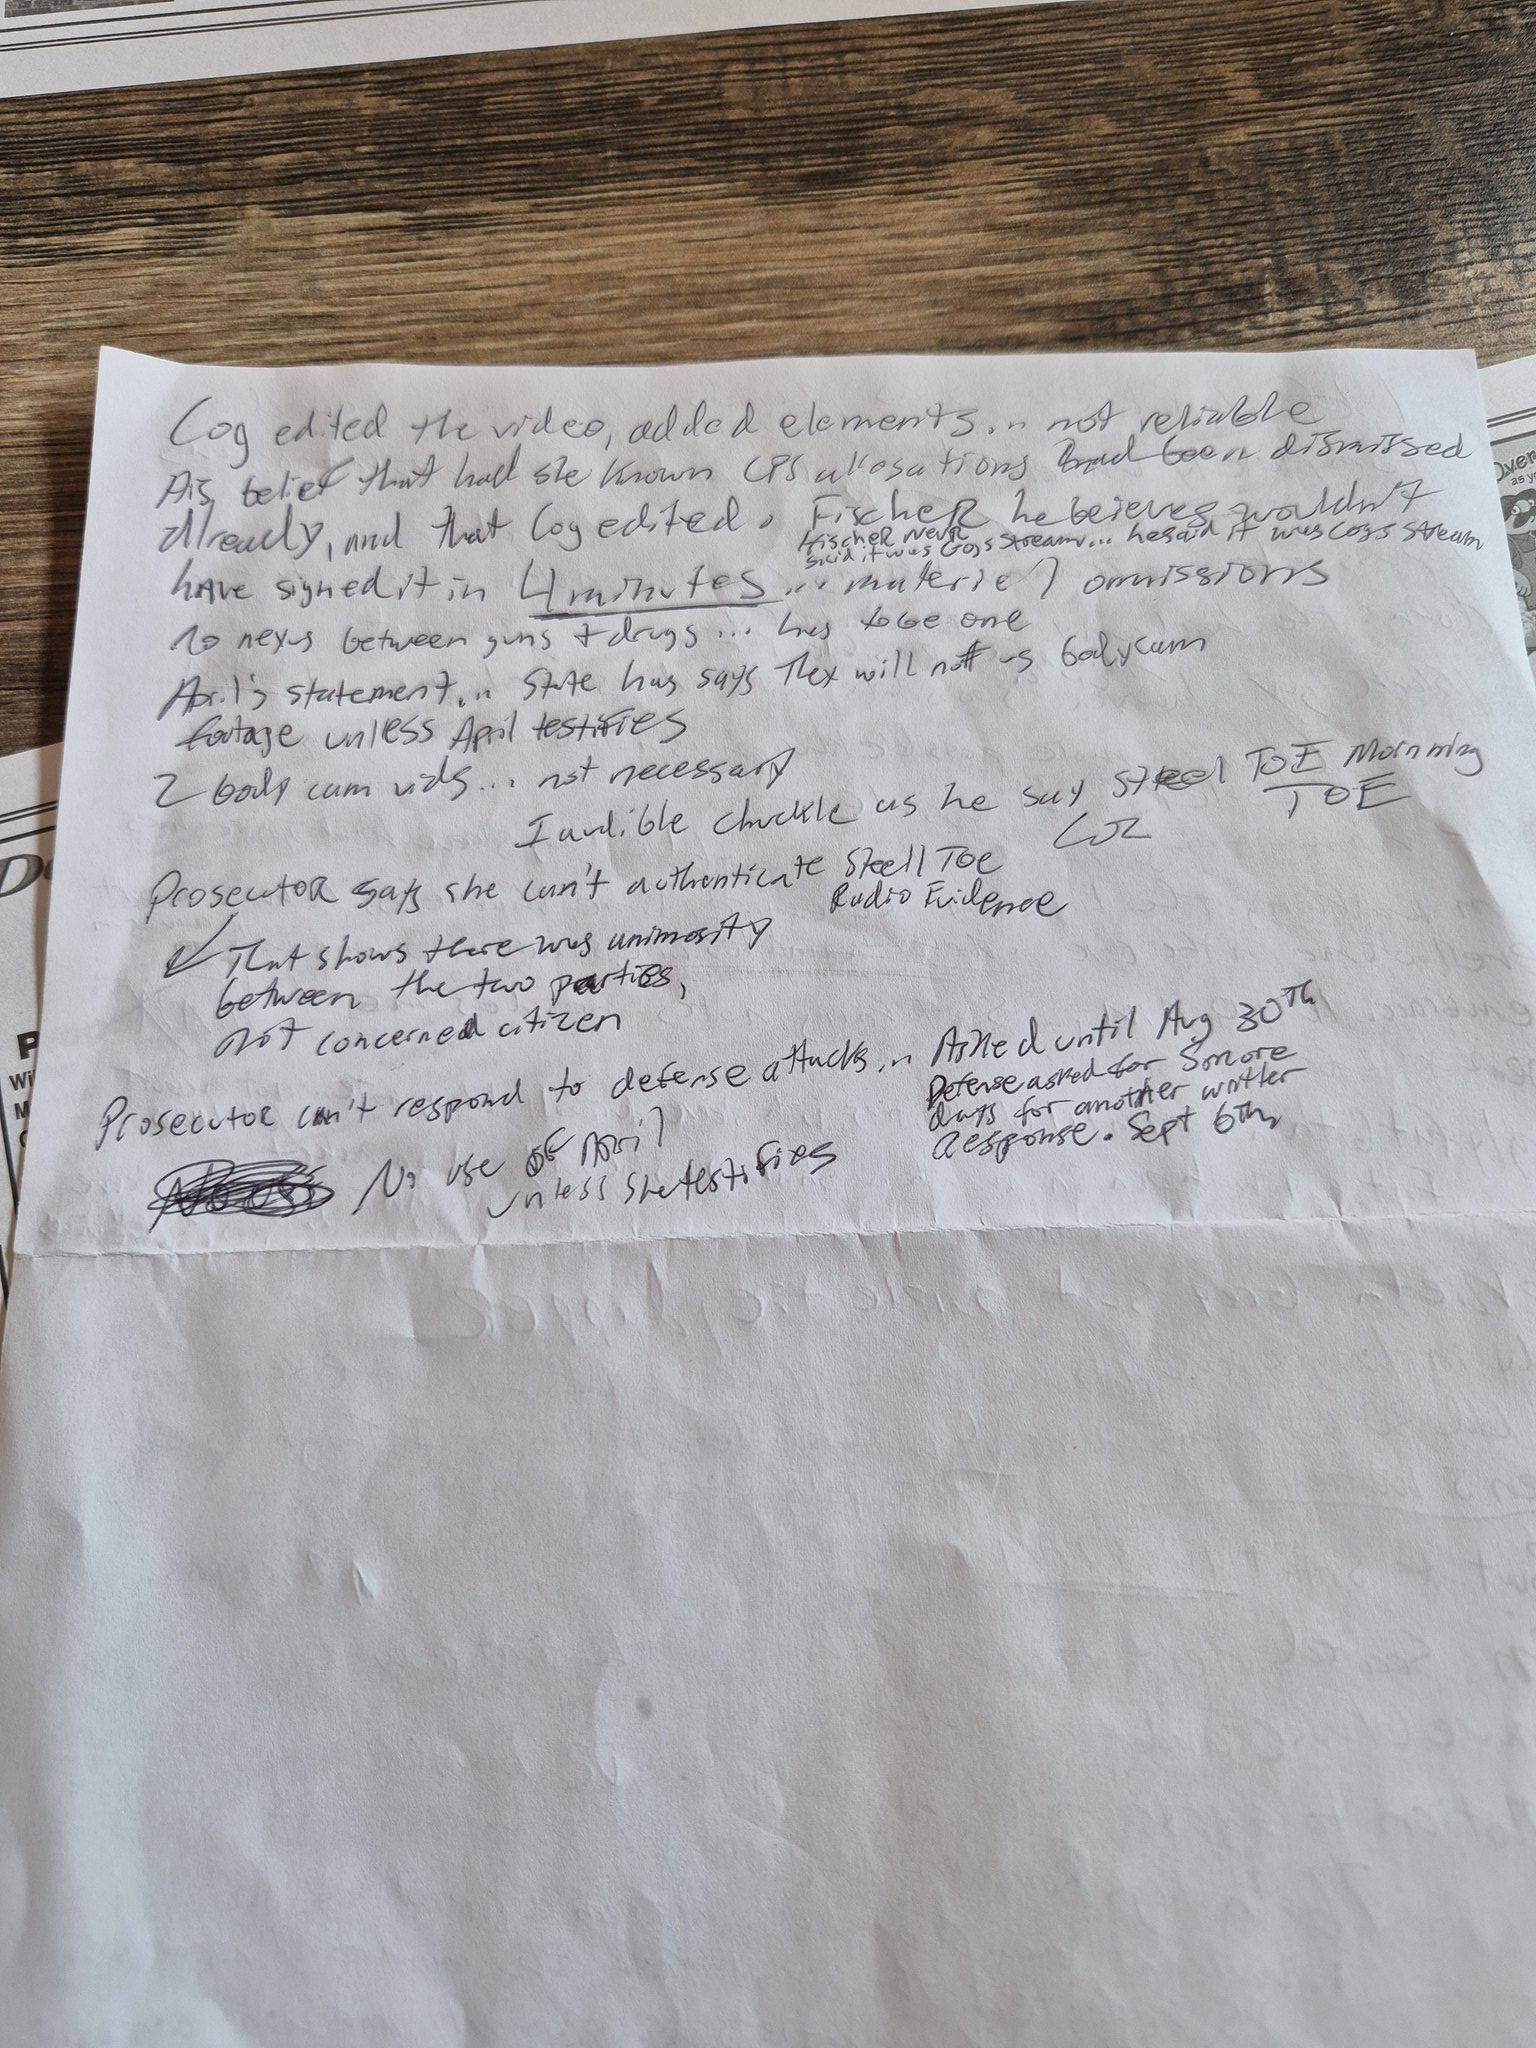 Cog edited the video, added elements... not reliable
His belief that had she known CPS allosations had been dismissed
already, and that Cog edited. Fischer he believes wouldn't
Fischer never
said it was Gogs stream... he said it was Cogs stream
have signed it in 4 minutes ... material omissions
no nexus between guns + drugs... has to be one
April's statement... State has says they will not us bodycam
footage unless April testifies
2 body cam vids... not necessary
I audible chuckle as he say Steel TOE Morning
TOE
LOL
Prosecutor says she can't authenticate Steell Toe
Radio Evidence
That shows there was animosity
between the two parties,
not concerned citizen
Prosecutor can't respond to defense attacks... Asked until Aug 30th
Defense asked for 5 more
days for another written
response. Sept 6th
No use of April
unless she testifies
Over
as yo
D
P
Wi
M